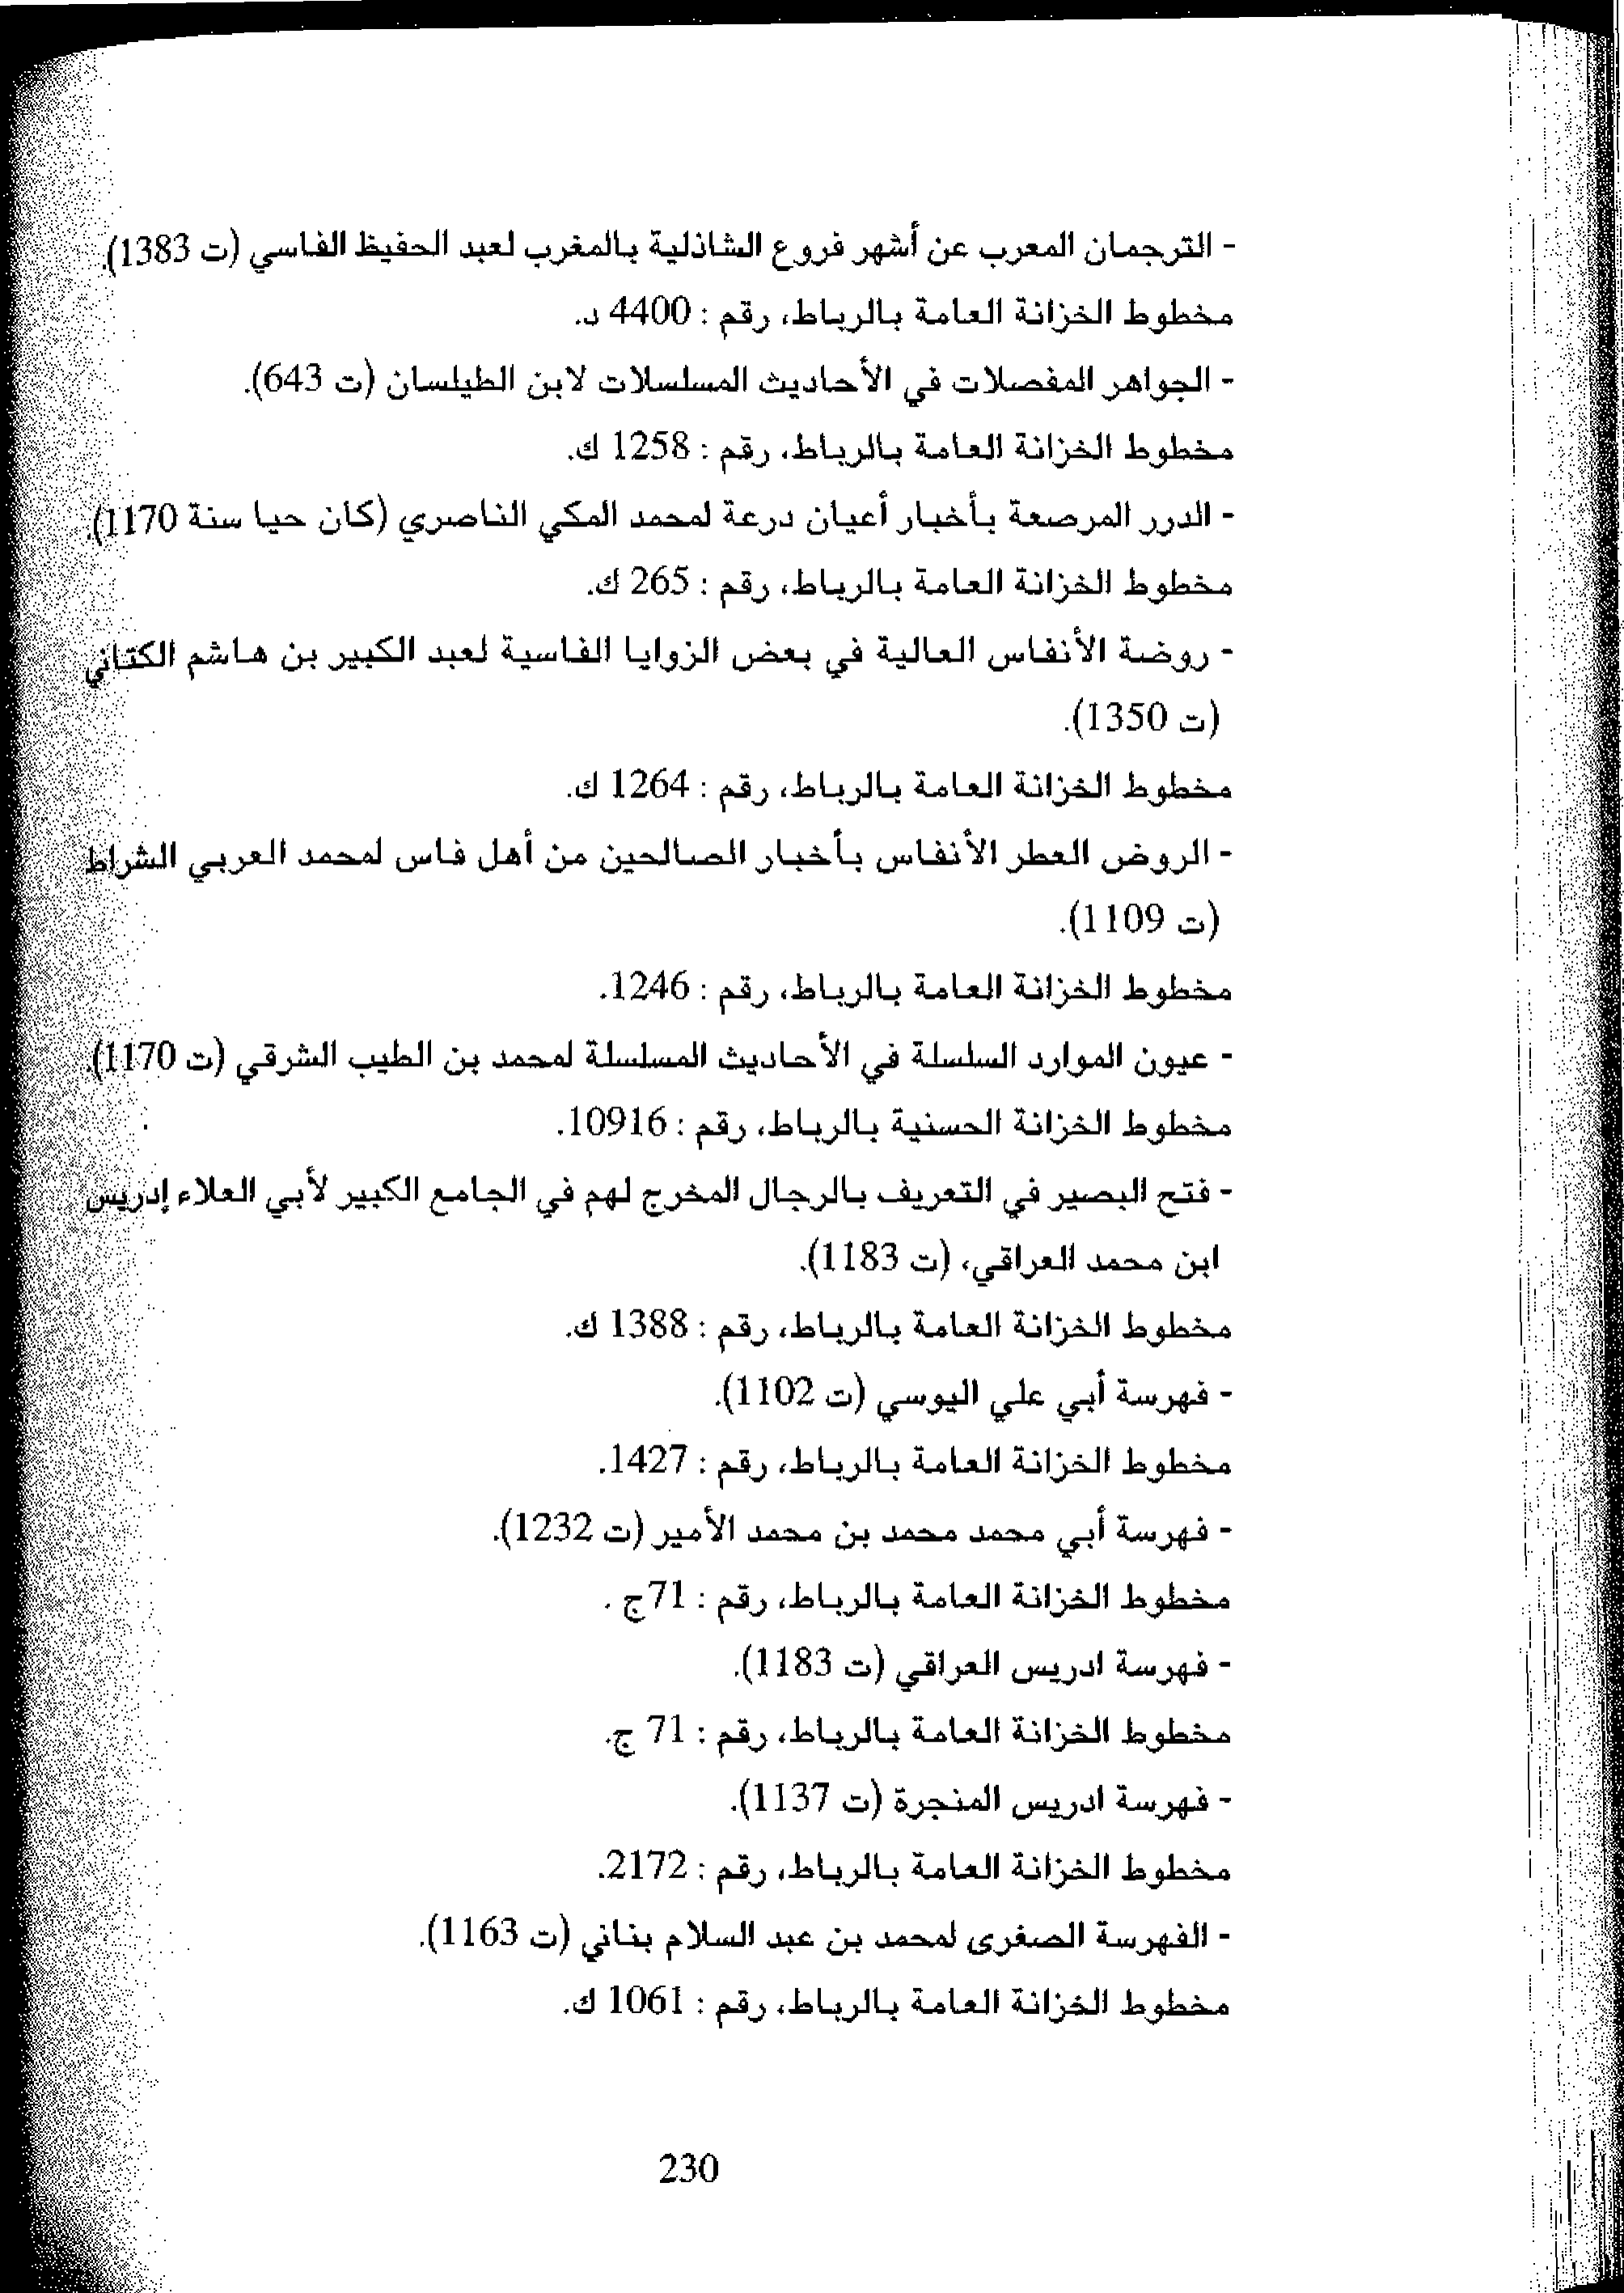 - الترجمان المعرب عن أشهر فروع الشاذلية بالمغرب لعبد الحفيظ الفاسي (ت 1383).
مخطوط الخزانة العامة بالرباط، رقم : 4400 د.
- الجواهر المفصلات في الأحاديث المسلسلات لابن الطيلسان (ت 643).
مخطوط الخزانة العامة بالرباط، رقم : 1258 ك.
- الدرر المرصعة بأخبار أعيان درعة لمحمد المكي الناصري (كان حيا سنة 1170).
مخطوط الخزانة العامة بالرباط، رقم : 265 ك.
- روضة الأنفاس العالية في بعض الزوايا الفاسية لعبد الكبير بن هاشم الكتاني
(ت 1350).
مخطوط الخزانة العامة بالرباط، رقم : 1264 ك.
- الروض العطر الأنفاس بأخبار الصالحين من أهل فاس لمحمد العربي الشراط
(ت 1109).
مخطوط الخزانة العامة بالرباط، رقم : 1246.
- عيون الموارد السلسلة في الأحاديث المسلسلة لمحمد بن الطيب الشرقي (ت 1170).
مخطوط الخزانة الحسنية بالرباط، رقم : 10916.
- فتح البصير في التعريف بالرجال المخرج لهم في الجامع الكبير لأبي العلاء إدريس
ابن محمد العراقي، (ت 1183).
مخطوط الخزانة العامة بالرباط، رقم : 1388 ك.
- فهرسة أبي علي اليوسي (ت 1102).
مخطوط الخزانة العامة بالرباط، رقم : 1427.
- فهرسة أبي محمد محمد بن محمد الأمير (ت 1232).
مخطوط الخزانة العامة بالرباط، رقم : 71ج .
- فهرسة ادريس العراقي (ت 1183).
مخطوط الخزانة العامة بالرباط، رقم : 71 ج.
- فهرسة ادريس المنجرة (ت 1137).
مخطوط الخزانة العامة بالرباط، رقم : 2172.
- الفهرسة الصغرى لمحمد بن عبد السلام بناني (ت 1163).
مخطوط الخزانة العامة بالرباط، رقم : 1061 ك.
230